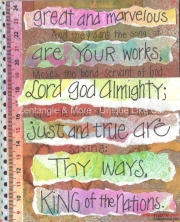 great and marvelous
And they sang the song of
are YOUR works,
Moses, the bond-servant of God
Lord god almighty;
Zentangle & More - Unique
just and true are
saying:
Thy ways,
KiNG of the nations.